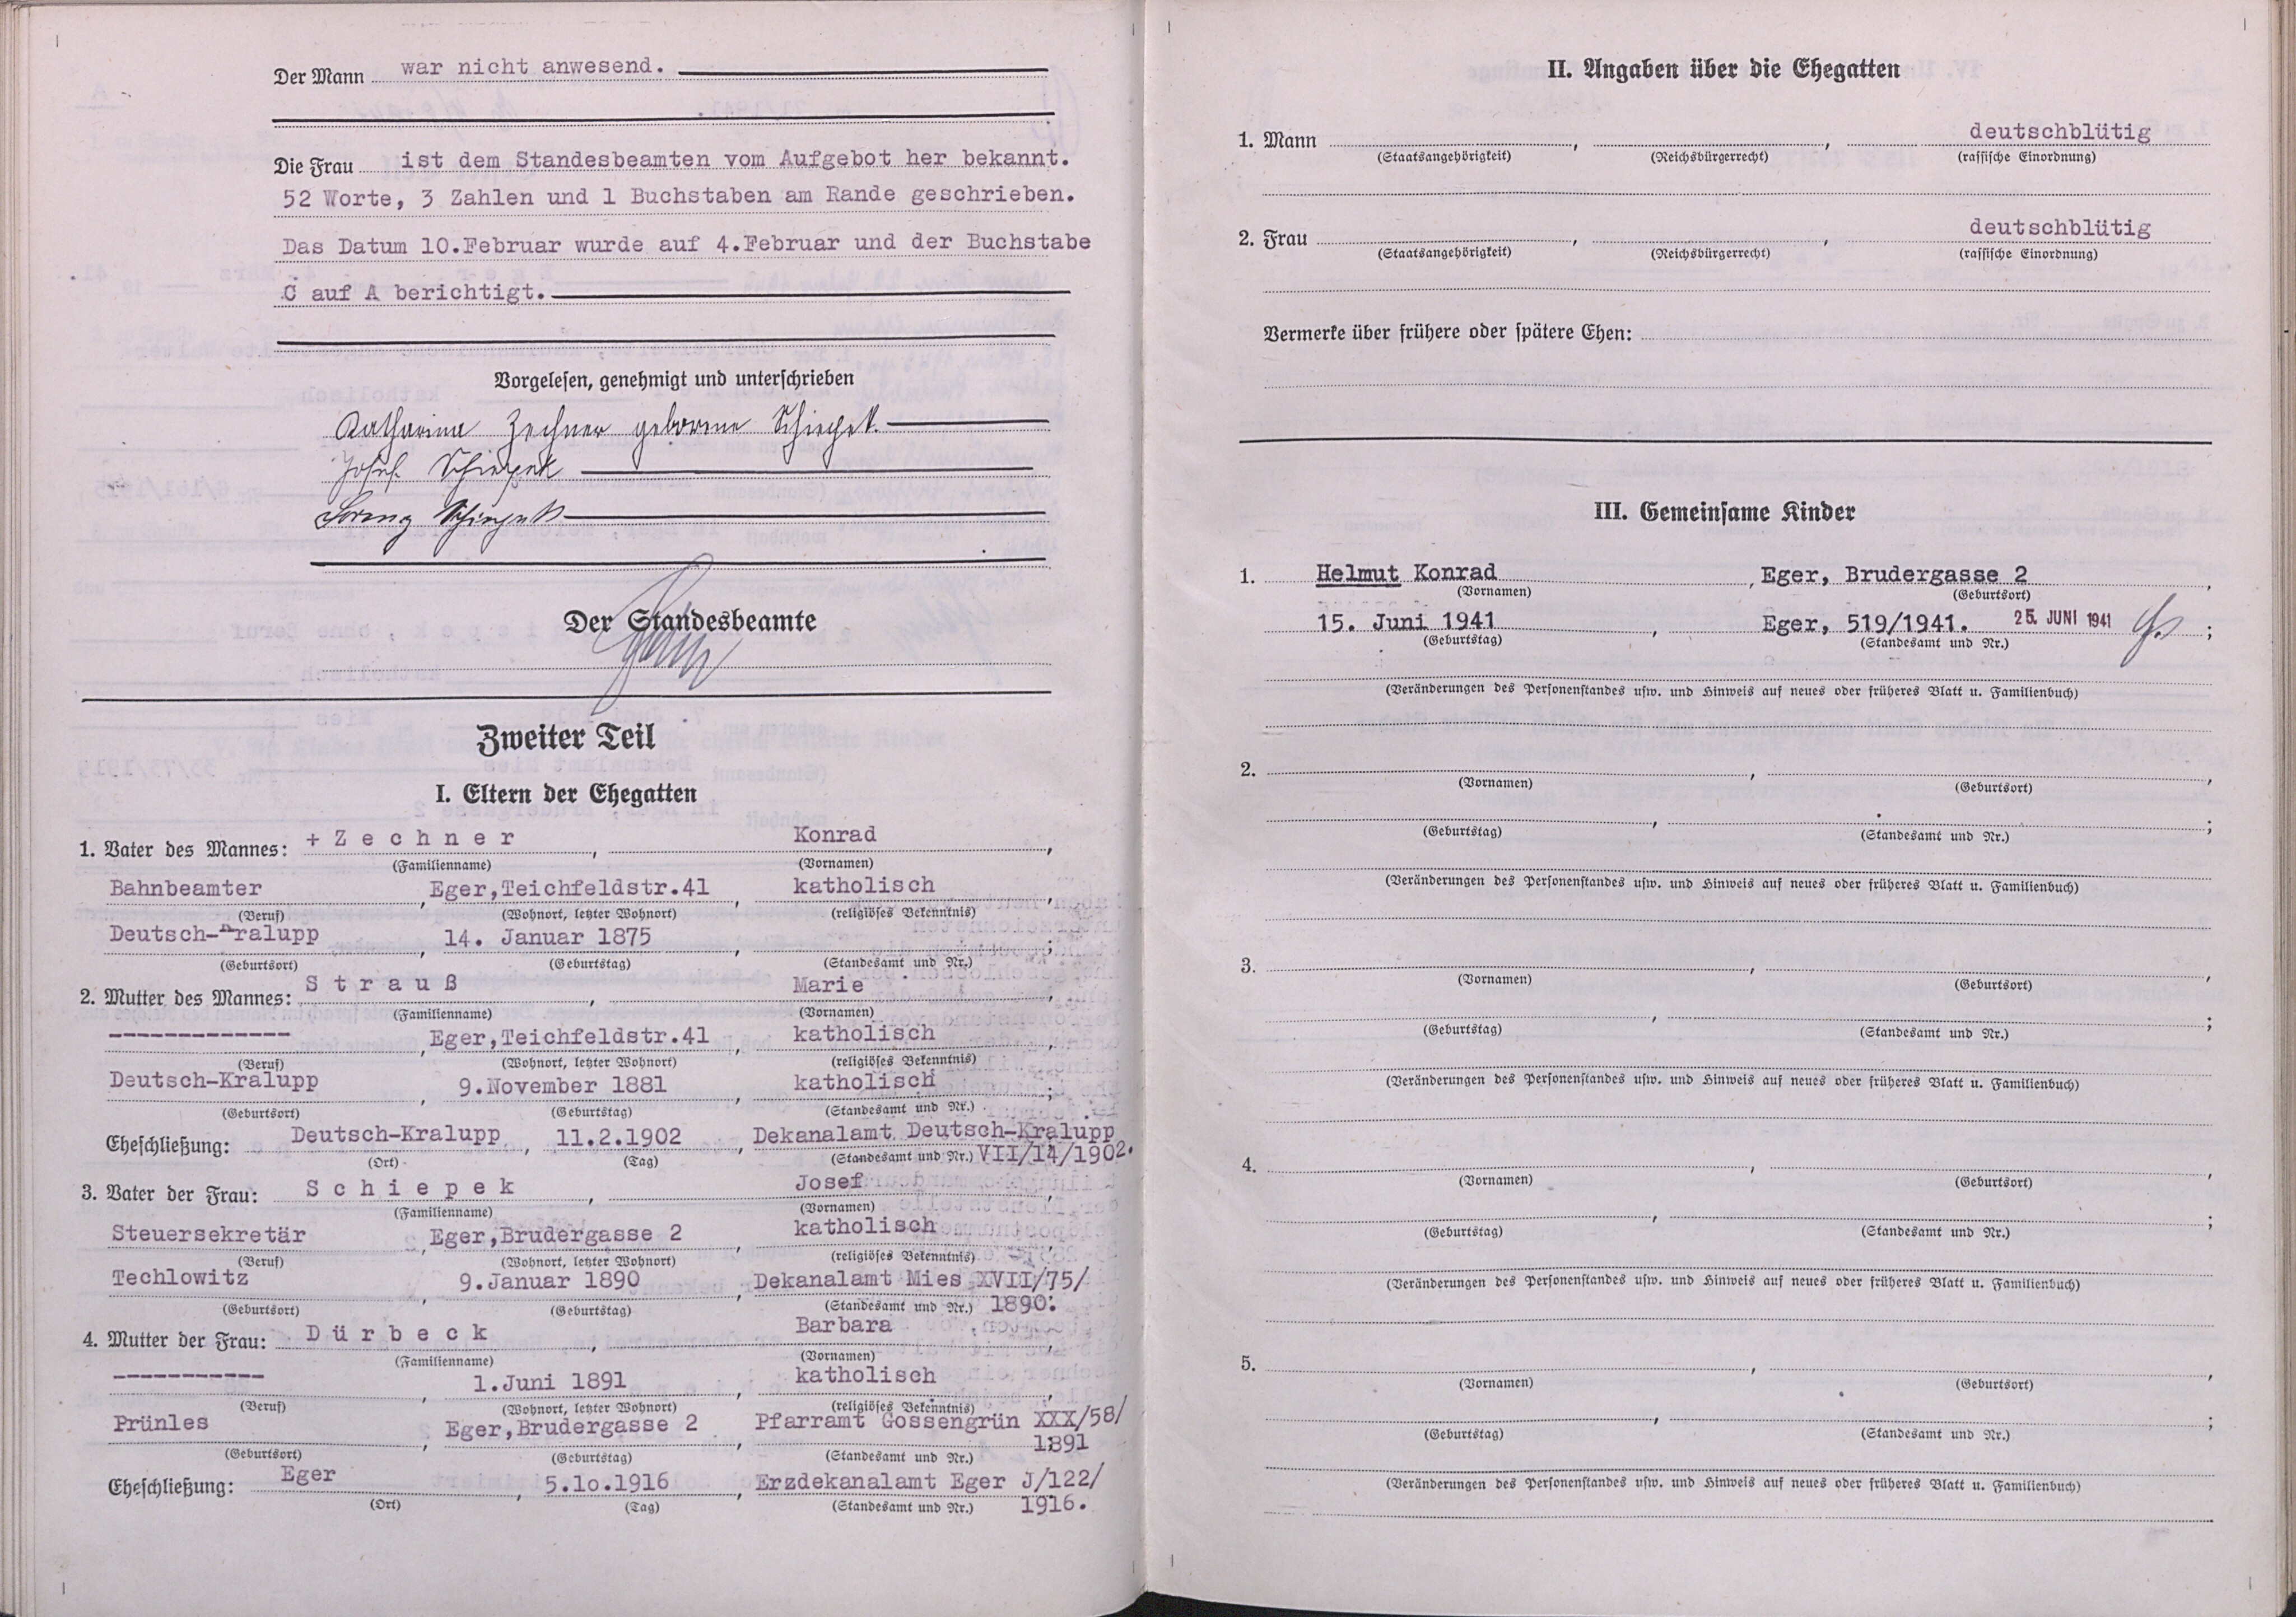 Der Mann war nicht anwesend.
Die Frau ist dem Standesbeamten vom Aufgebot her bekannt.
52 Worte, 3 Zahlen und 1 Buchstaben am Rande geschrieben.
Das Datum 10.Februar wurde auf 4.Februar und der Buchstabe
C auf A berichtigt.
Vorgelesen, genehmigt und unterschrieben
Katharina Zechner geborene Schiepek.
Josef Schiepek
Lorenz Schiepek
Der Standesbeamte
Zweiter Teil
I. Eltern der Ehegatten
1. Vater des Mannes: + Z e c h n e r , Konrad ,
(Familienname) (Vornamen)
Bahnbeamter , Eger,Teichfeldstr.41 , katholisch ,
(Beruf) (Wohnort, letzter Wohnort) (religiöses Bekenntnis)
Deutsch-Kralupp , 14. Januar 1875 , ;
(Geburtsort) (Geburtstag) (Standesamt und Nr.)
2. Mutter des Mannes: S t r a u ß , Marie ,
(Familienname) (Vornamen)
------------- , Eger,Teichfeldstr.41 , katholisch ,
(Beruf) (Wohnort, letzter Wohnort) (religiöses Bekenntnis)
Deutsch-Kralupp , 9.November 1881 , katholisch ;
(Geburtsort) (Geburtstag) (Standesamt und Nr.)
Eheschließung: Deutsch-Kralupp , 11.2.1902 , Dekanalamt Deutsch-Kralupp
(Ort) (Tag) (Standesamt und Nr.) VII/14/1902.
3. Vater der Frau: S c h i e p e k , Josef ,
(Familienname) (Vornamen)
Steuersekretär , Eger,Brudergasse 2 , katholisch ,
(Beruf) (Wohnort, letzter Wohnort) (religiöses Bekenntnis)
Techlowitz , 9.Januar 1890 , Dekanalamt Mies XVII/75/
(Geburtsort) (Geburtstag) (Standesamt und Nr.) 1890.
4. Mutter der Frau: D ü r b e c k , Barbara ,
(Familienname) (Vornamen)
----------- , 1.Juni 1891 , katholisch ,
(Beruf) (Wohnort, letzter Wohnort) (religiöses Bekenntnis)
Prünles , Eger,Brudergasse 2 , Pfarramt Gossengrün XXX/58/
1891
(Geburtsort) (Geburtstag) (Standesamt und Nr.)
Eheschließung: Eger , 5.10.1916 , Erzdekanalamt Eger J/122/
(Ort) (Tag) (Standesamt und Nr.) 1916.
II. Angaben über die Ehegatten
1. Mann , , deutschblütig
(Staatsangehörigkeit) (Reichsbürgerrecht) (rassische Einordnung)
2. Frau , , deutschblütig
(Staatsangehörigkeit) (Reichsbürgerrecht) (rassische Einordnung)
Vermerke über frühere oder spätere Ehen:
III. Gemeinsame Kinder
1. Helmut Konrad , Eger, Brudergasse 2 ,
(Vornamen) (Geburtsort)
15. Juni 1941 , Eger, 519/1941. 25. JUNI 1941 ;
(Geburtstag) (Standesamt und Nr.)
(Veränderungen des Personenstandes usw. und Hinweis auf neues oder früheres Blatt u. Familienbuch)
2. , ,
(Vornamen) (Geburtsort)
, ;
(Geburtstag) (Standesamt und Nr.)
(Veränderungen des Personenstandes usw. und Hinweis auf neues oder früheres Blatt u. Familienbuch)
3. , ,
(Vornamen) (Geburtsort)
, ;
(Geburtstag) (Standesamt und Nr.)
(Veränderungen des Personenstandes usw. und Hinweis auf neues oder früheres Blatt u. Familienbuch)
4. , ,
(Vornamen) (Geburtsort)
, ;
(Geburtstag) (Standesamt und Nr.)
(Veränderungen des Personenstandes usw. und Hinweis auf neues oder früheres Blatt u. Familienbuch)
5. , ,
(Vornamen) (Geburtsort)
, ;
(Geburtstag) (Standesamt und Nr.)
(Veränderungen des Personenstandes usw. und Hinweis auf neues oder früheres Blatt u. Familienbuch)